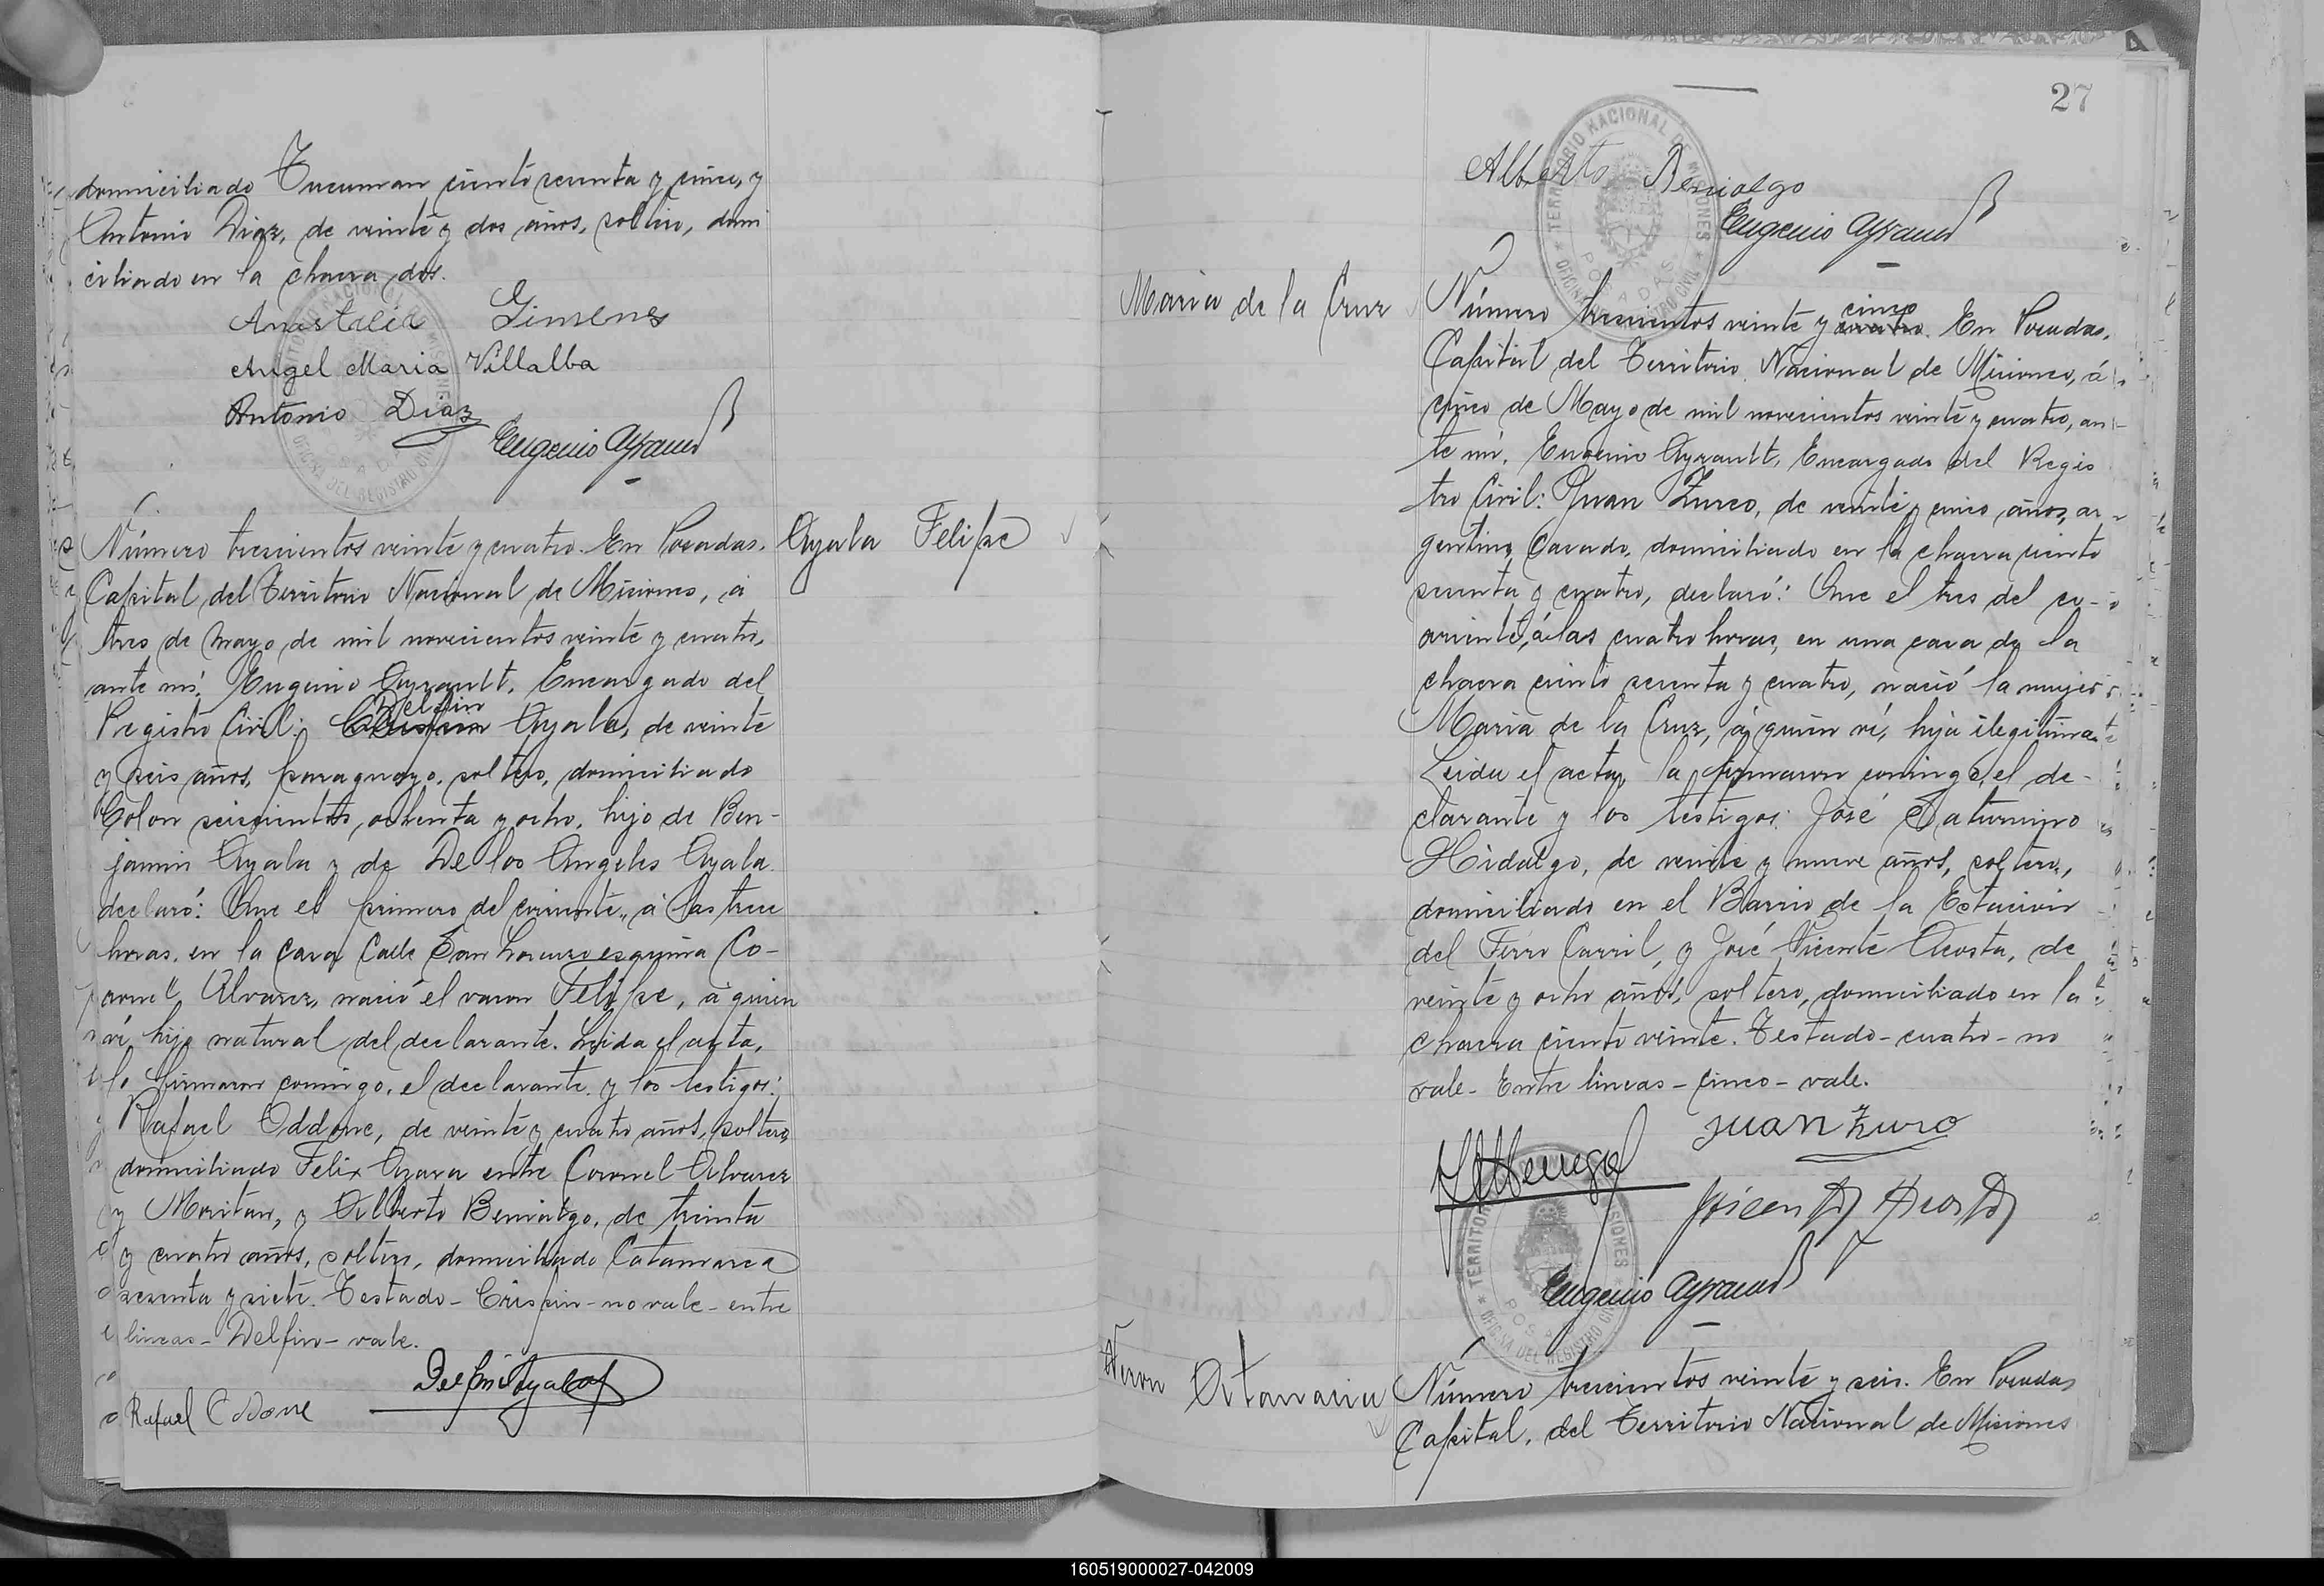 domiciliado Tucuman ciento sesenta y cinco, y
Antonio Diaz, de veinte y dos años, soltero, domi
ciliado en la chacra dos.
Anastacia Gimenes
Angel Maria Villalba
Antonio Diaz
Eugenio Ayrault
Número trescientos veinte y cuatro. En Posadas,
Capital del Territorio Nacional de Misiones, á
tres de Mayo de mil novecientos veinte y cuatro,
ante mí, Eugenio Ayrault, Encargado del
Delfin
Registro Civil: Crispin Ayala, de veinte
y seis años, paraguayo, soltero, domiciliado
Colon seiscientos, ochenta y ocho, hijo de Ben-
jamin Ayala y de De los Angeles Ayala
declaró: Que el primero del corriente, á las trece
horas, en la casa Calle San Lorenzo esquina Co-
ronel Alvarez, nació el varon Felipe, á quien
ví, hijo natural del declarante. Leida el acta,
la firmaron conmigo, el declarante y los testigos:
Rafael Oddone, de veinte y cuatro años, soltero,
domiciliado Felix Azara entre Coronel Alvarez
y Moritan, y Alberto Beniolgo, de treinta
y cuatro años, soltero, domiciliado Catamarca
sesenta y siete. Testado - Crispin - no vale - entre
lineas - Delfin - vale.
Delfin Ayala
Rafael Oddone
Ayala Felipe
27
Alberto Beniolgo
Eugenio Ayrault
TERRITORIO NACIONAL DE MISIONES
POSADAS
OFICINA DEL REGISTRO CIVIL
Maria de la Cruz
cinco
Número trescientos veinte y cuatro. En Posadas,
Capital del Territorio Nacional de Misiones, á
cinco de Mayo de mil novecientos veinte y cuatro, an-
te mí, Eugenio Ayrault, Encargado del Regis
tro Civil: Juan Zurco, de veinte y cinco años, ar-
gentino, Casado, domiciliado en la chacra ciento
sesenta y cuatro, declaró: Que el tres del co-
rriente, á las cuatro horas, en una casa de la
chacra ciento sesenta y cuatro, nació la mujer
Maria de la Cruz, á quien ví, hija ilegitima.
Leida el acta, la firmaron conmigo, el de-
clarante y los testigos: José Saturnino
Hidalgo, de veinte y nueve años, soltero,
domiciliado en el Barrio de la Estacion
del Ferro Carril, y José Vicente Acosta, de
veinte y ocho años, soltero, domiciliado en la
chacra ciento veinte. Testado - cuatro - no
vale - Entre lineas - cinco - vale.
Juan Zurco
Vicente Acosta
Eugenio Ayrault
Octavaria
Número trescientos veinte y seis. En Posadas
Capital, del Territorio Nacional de Misiones
160519000027-042009